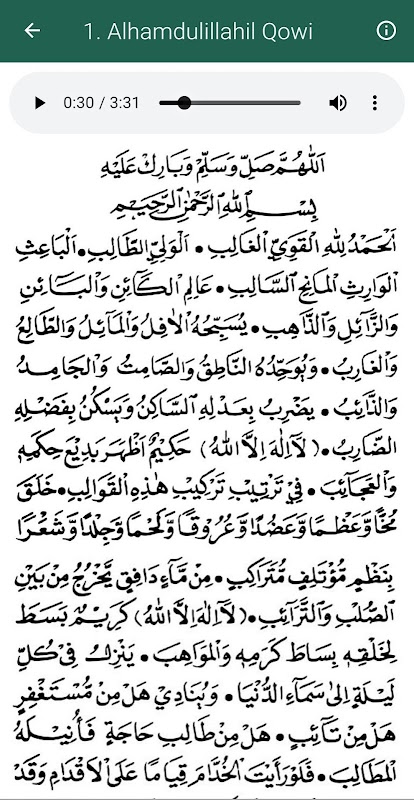 1. Alhamdulillahil Qowi
0:30 / 3:31
اَللّٰهُمَّ صَلِّ وَسَلِّمْ وَبَارِكْ عَلَيْهِ
بِسْمِ اللهِ الرَّحْمٰنِ الرَّحِيْمِ
اَلْحَمْدُ لِلّٰهِ الْقَوِيِّ الْغَالِبِ • اَلْوَلِيِّ الطَّالِبِ • اَلْبَاعِثِ
الْوَارِثِ الْمَانِحِ السَّالِبِ • عَالِمِ الْكَائِنِ وَالْبَائِنِ
وَالزَّائِلِ وَالذَّاهِبِ • يُسَبِّحُهُ الْاٰفِلُ وَالْمَائِلُ وَالطَّالِعُ
وَالْغَارِبُ • وَيُوَحِّدُهُ النَّاطِقُ وَالصَّامِتُ وَالْجَامِدُ
وَالذَّائِبُ • يَضْرِبُ بِعَدْلِهِ السَّاكِنُ وَيَسْكُنُ بِفَضْلِهِ
الضَّارِبُ • (لَآ اِلٰهَ اِلَّا اللهُ) حَكِيْمٌ اَظْهَرَ بَدِيْعَ حِكَمِهِ
وَالْعَجَآئِبَ • فِيْ تَرْتِيْبِ تَرْكِيْبِ هٰذِهِ الْقَوَالِبِ • خَلَقَ
مُخًّا وَّعَظْمًا وَّعَضُدًا وَّعُرُوْقًا وَّلَحْمًا وَّجِلْدًا وَّشَعْرًا
بِنَظْمٍ مُّؤْتَلِفٍ مُّتَرَاكِبٍ • مِنْ مَّآءٍ دَافِقٍ يَّخْرُجُ مِنْ بَيْنِ
الصُّلْبِ وَالتَّرَآئِبِ • (لَآ اِلٰهَ اِلَّا اللهُ) كَرِيْمٌ بَسَطَ
لِخَلْقِهِ بِسَاطَ كَرَمِهِ وَالْمَوَاهِبِ • يَنْزِلُ فِيْ كُلِّ
لَيْلَةٍ اِلٰى سَمَآءِ الدُّنْيَا • وَيُنَادِيْ هَلْ مِنْ مُّسْتَغْفِرٍ
هَلْ مِنْ تَآئِبٍ • هَلْ مِنْ طَالِبِ حَاجَةٍ فَاُنِيْلَهُ
الْمَطَالِبَ • فَلَوْ رَاَيْتَ الْخُدَّامَ قِيَامًا عَلَى الْاَقْدَامِ وَقَدْ